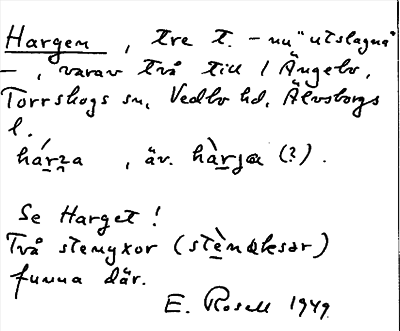 Hargen, tre t. - nu "utslagna"
-, varav två till / Ängebo,
Torrskogs sn, Vedbo hd, Älvsborgs
l.
hárza, äv. hàrja (?).
Se Harget!
Två stenyxor (stènəksar)
funna där.
E. Rosell 1949